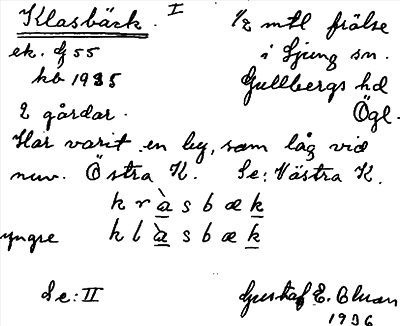 Klasbäck. I 1/2 mtl frälse
ek. G 55 i Ljung sn.
kb 1935 Gullbergs hd
2 gårdar. Ögl.
Har varit en by, som låg vid
nuv. Östra K. Se: Västra K.
k r à s b æ k
yngre k l à s b æ k
Se: II Gustaf E. Bluan
1936